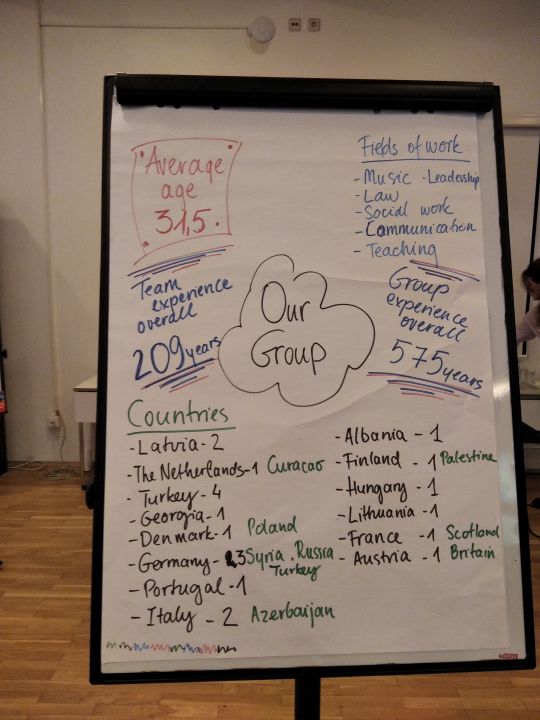 Average
age
31,5
Fields of work
- Music - Leadership
- Law
- Social work
- Communication
- Teaching
Team
experience
overall
209 years
Our
Group
Group
experience
overall
575 years
Countries
- Latvia - 2
- The Netherlands - 1 Curacao
- Turkey - 4
- Georgia - 1
- Denmark - 1 Poland
- Germany - 3 Syria . Russia
Turkey
- Portugal - 1
- Italy - 2 Azerbaijan
- Albania - 1
- Finland - 1 Palestine
- Hungary - 1
- Lithuania - 1
- France - 1 Scotland
- Austria - 1 Britain